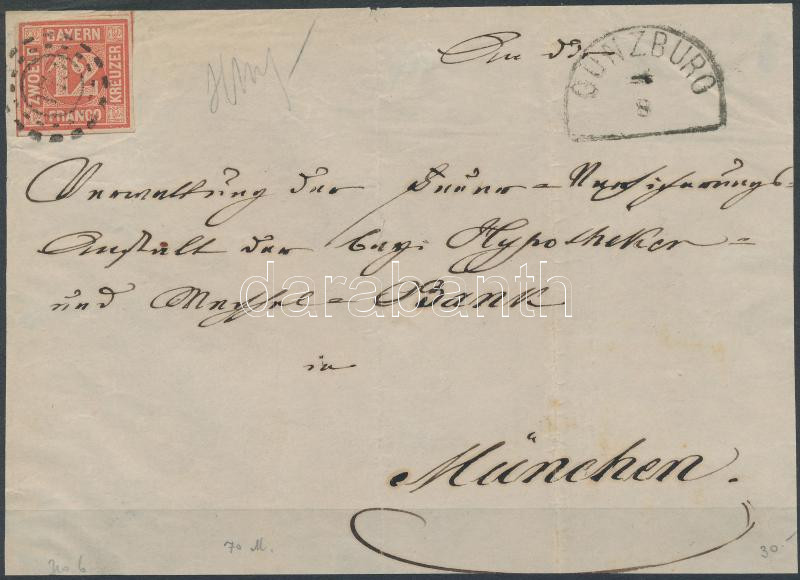 BAYERN
ZWOELF
12
KREUZER
FRANCO
An die
GÜNZBURG
8
Verwaltung der Feuer=Versicherungs=
Anstalt der bayr. Hypotheken=
und Wechsel=Bank
darabanth
in
München.
70 M.
No. 6
30.-